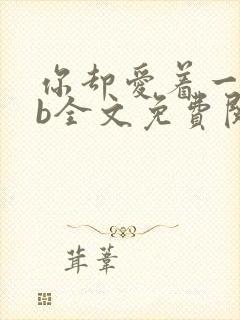 你却爱着一
b全文免费阅
茸葦